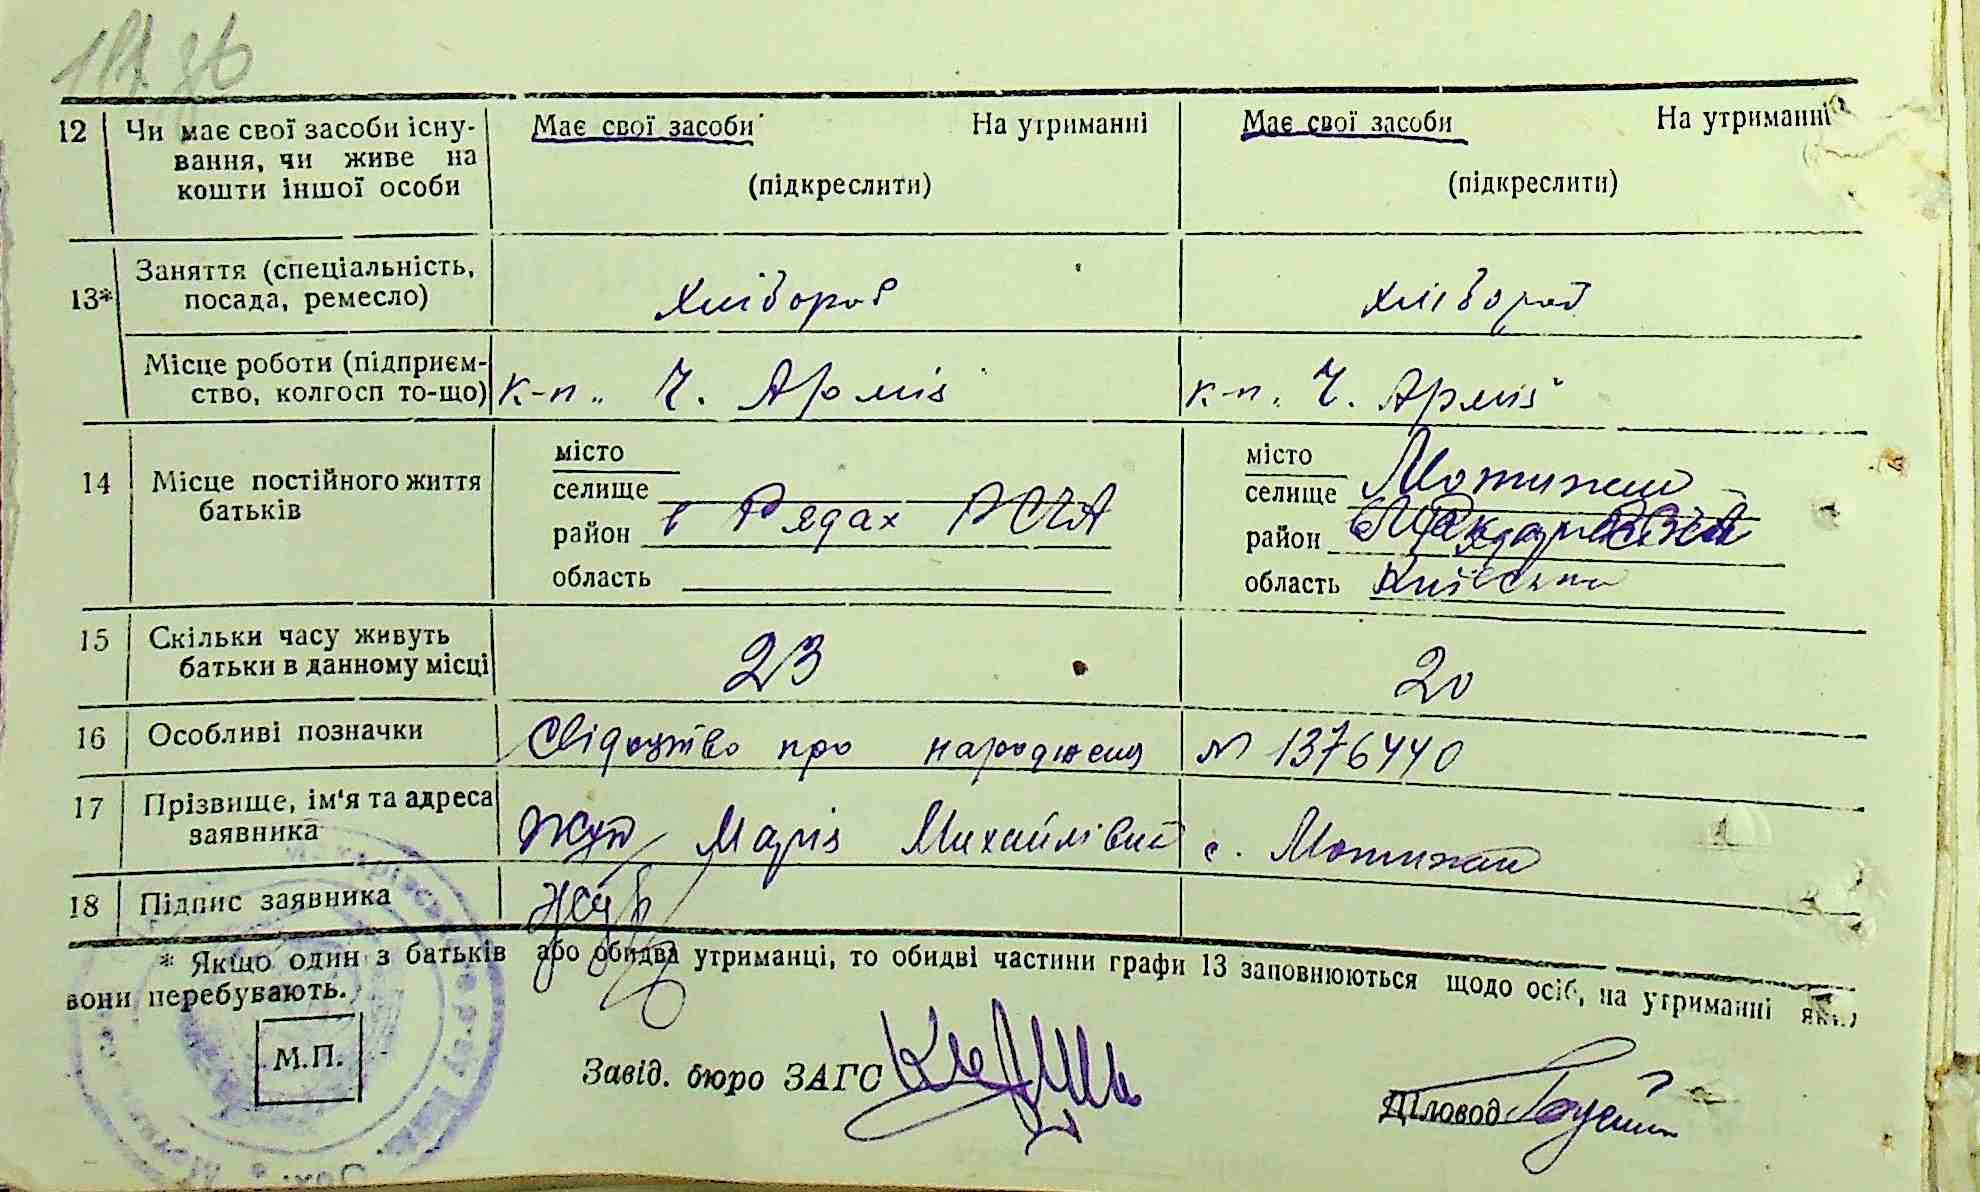 12 Чи має свої засоби існу- Має свої засоби На утриманні Має свої засоби На утриманні
вання, чи живе на
кошти іншої особи (підкреслити) (підкреслити)
13* Заняття (спеціальність,
посада, ремесло) Хлібороб хлібороб
Місце роботи (підприєм-
ство, колгосп то-що) к-п „ Ч. Армія к-п. Ч. Армії
14 Місце постійного життя
батьків
місто місто
селище селище Мотижин
район в Рядах РСЧА район
область область Київська
15 Скільки часу живуть
батьки в данному місці 23 20
16 Особливі позначки Свідоцтво про народженя № 1376440
17 Прізвище, ім'я та адреса
заявника Марія Михайлівна с. Мотижин
18 Підпис заявника
* Якщо один з батьків або обидва утриманці, то обидві частини графи 13 заповнюються щодо осіб, на утриманні яких
вони перебувають.
М.П.
Завід. бюро ЗАГС
Діловод